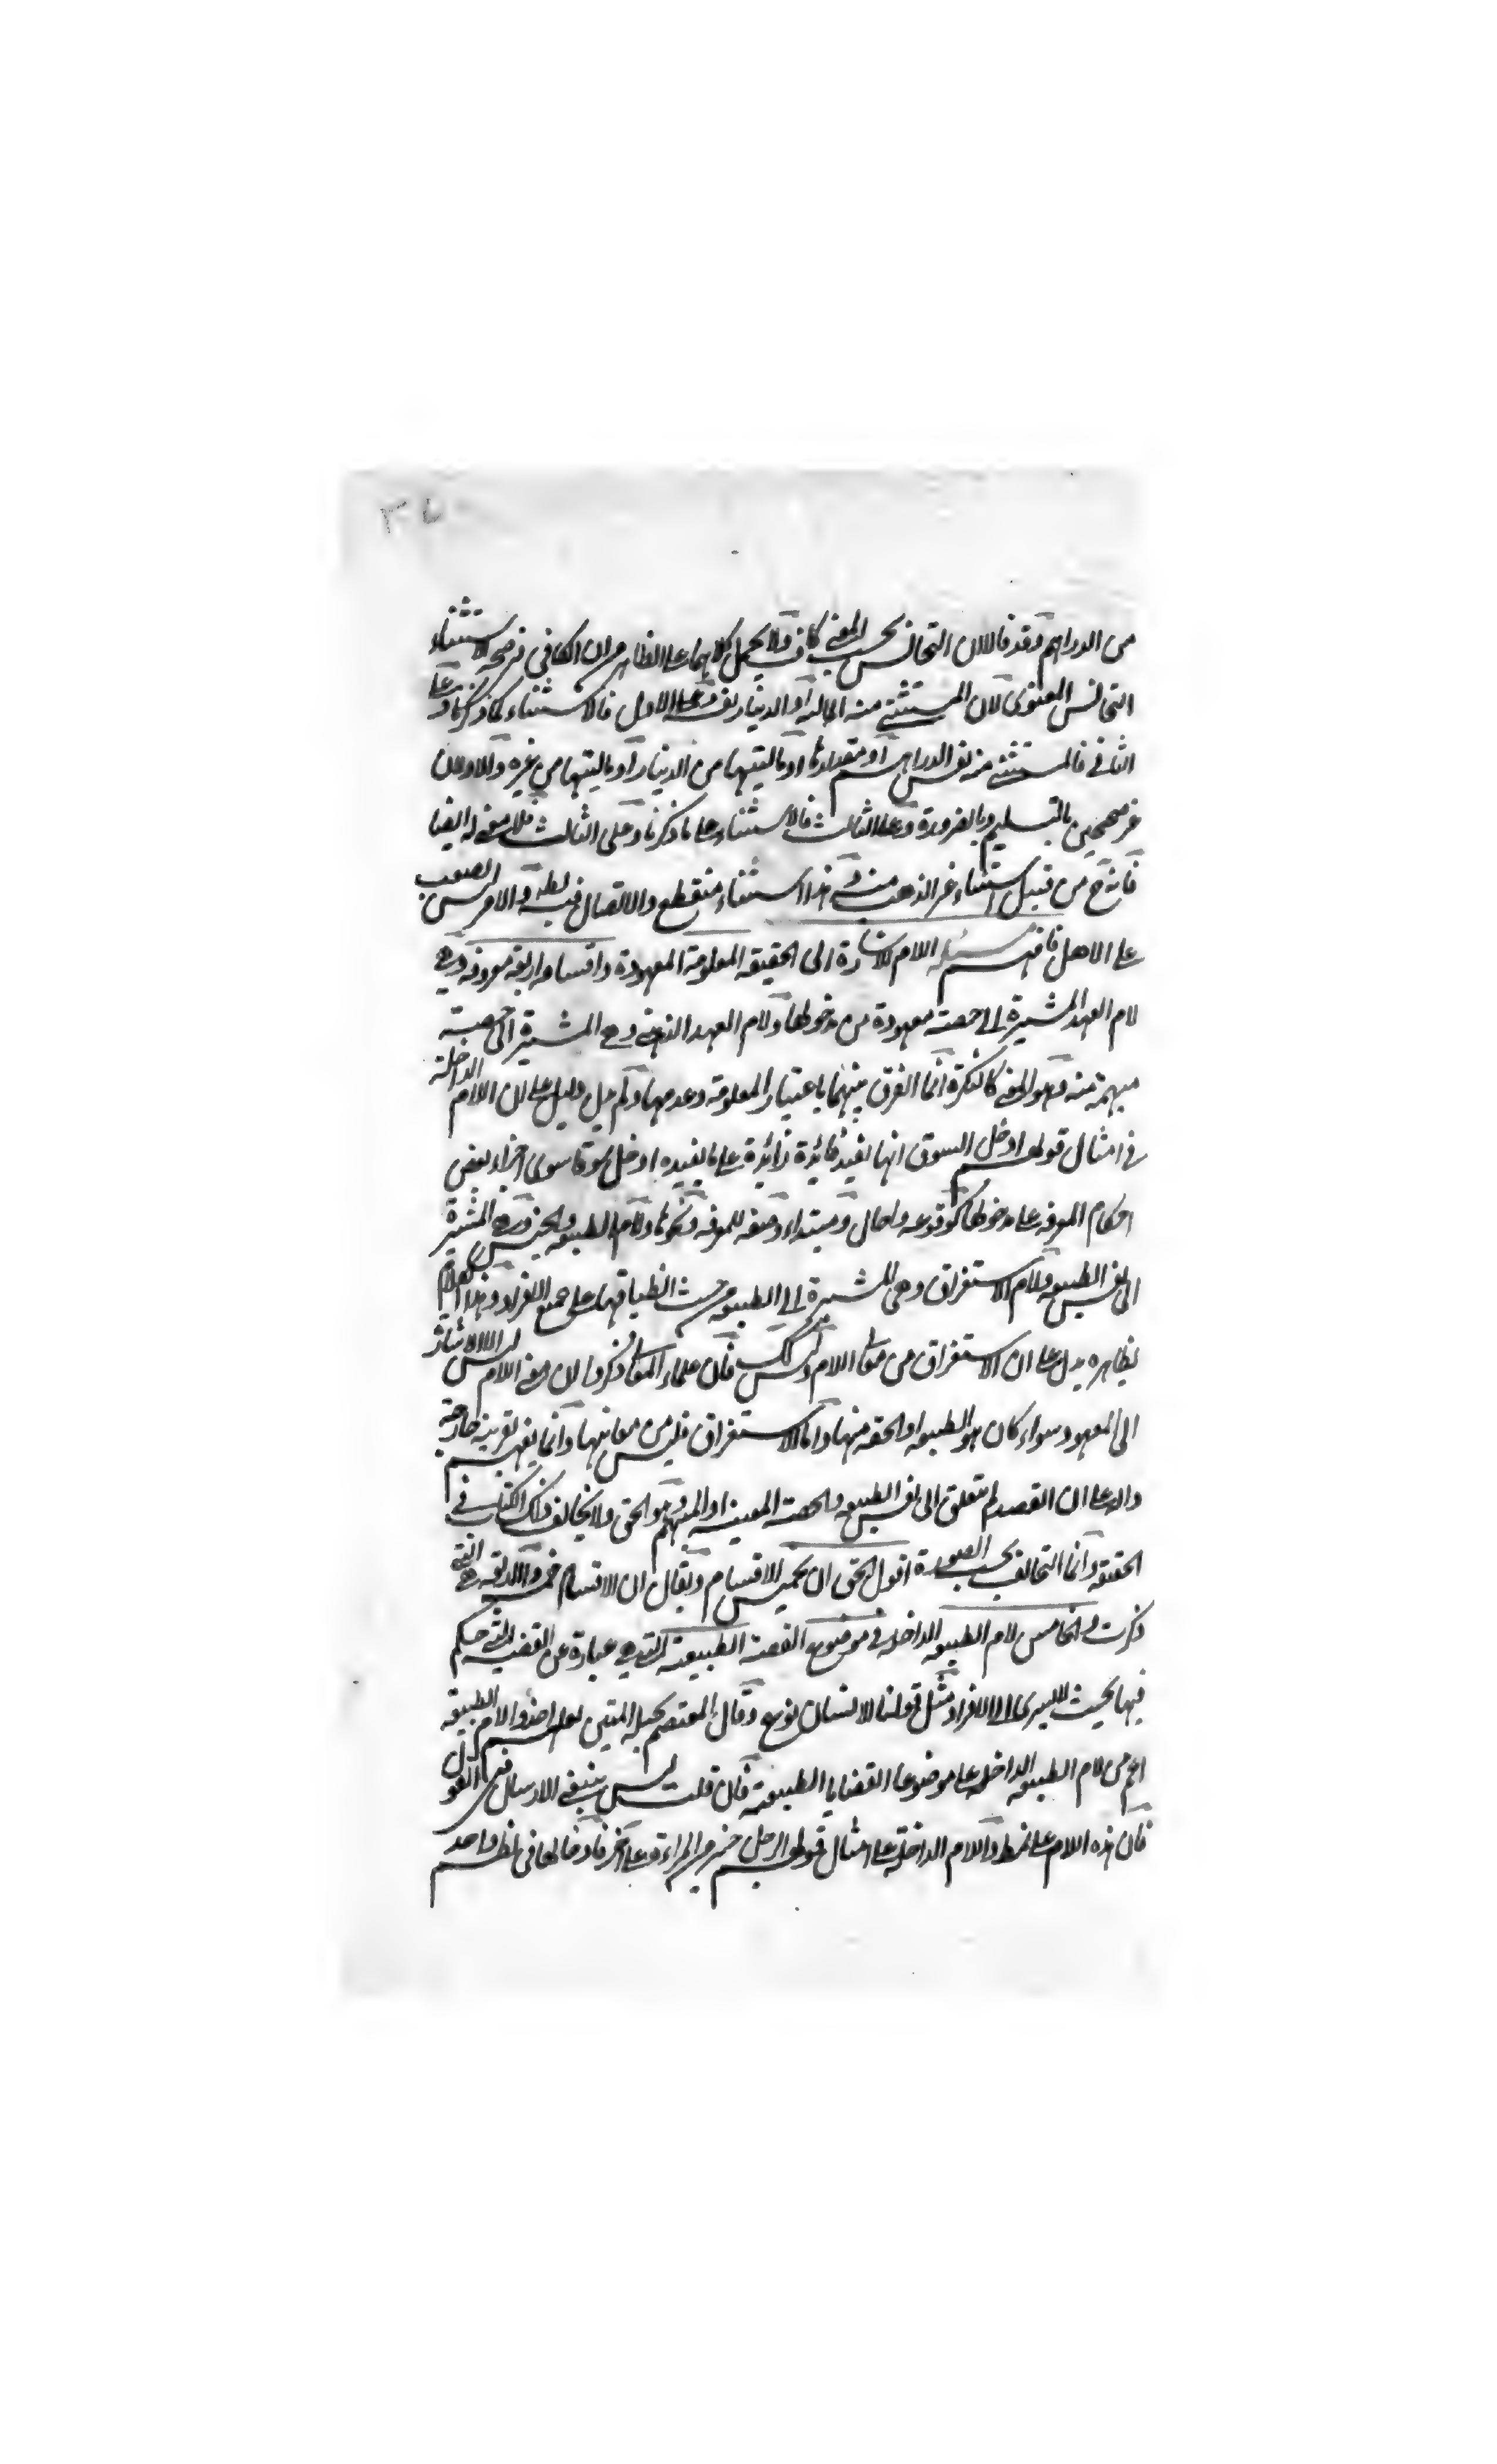 من الدراهم وقد قالا لان التجانس بحسب المعنى كاف ولا يحمل كلاهما على الظاهر من ان الكافي في صحة الاستثناء
التجانس المعنوي لان المستثنى منه المالية او الدينار نفسه وعلى الاول فالاستثناء كما ذكرنا وعلى
الثاني فالمستثنى منه نفس الدراهم او مقدارها او ماليتها من الدينار او ماليتها من غيره والاولان
غير صحيحين بالتسليم وبالضرورة وعلى الثالث فالاستثناء على ما ذكرنا وعلى الثالث فلا معنى له ايضا
فانه ح من قبيل استثناء غير الذهب منه وهذا استثناء منقطع والاتصال فيه بطله والامر ليس بصعب
على الاهل فافهم مسئلة اللام للاشارة الى الحقيقة المعلومة المعهودة واقسامه اربعة معروفة وهي
لام العهد المشيرة الى حصة معهودة من مدخولها ولام العهد الذهني وهي المشيرة الى حصة
مبهمة منه وهو في المعنى كالنكرة انما الفرق بينهما باعتبار المعلومية وعدمها ولم يدل دليل على ان اللام الداخلة
في امثال قولهم ادخل السوق انها تفيد فائدة زائدة على ما يفيده ادخل سوقا سوى اجراء بعض
احكام المعرفة على مدخولها كوقوعه ذا حال ومبتداء وصفة للمعرفة ونحوها ولام الطبيعة والجنس وهي المشيرة
الى نفس الطبيعة ولام الاستغراق وهي المشيرة الى الطبيعة من حيث انطباقها على جميع الافراد وهذا الكلام
بظاهره يدل على ان الاستغراق من معاني اللام وليس كذلك فان علماء المعاني ذكروا ان معنى اللام ليس الا الاشارة
الى المعهود سواء كان هو الطبيعة او الحصة منها واما الاستغراق فليس من معانيها وانما يفهم بقرينة خارجة
دالة على ان القصد لم يتعلق الى نفس الطبيعة والحصة المعينة او المبهمة وهو الحق ولا يخالف ذلك الكتاب في
الحقيقة وانما التخالف بحسب الصورة اقول الحق ان يخمس الاقسام ويقال ان الاقسام خمسة والاربعة هي التي
ذكرت والخامس لام الطبيعة الداخلة في موضوع القضية الطبيعية التي هي عبارة عن القضية التي حكم
فيها بحيث لا يسري الى الافراد مثل قولنا الانسان نوع وقال المعتصم بحبله المتين لعلهم اخذوا لام الطبيعة
اعم من لام الطبيعة الداخلة على موضوعات القضايا الطبيعية فان قلت ليس ينبغي الارسال في القول
فان هذه اللام على نمط واللام الداخلة على امثال قولهم الرجل خير من المراءة على آخر فادخالها في نظم واحد